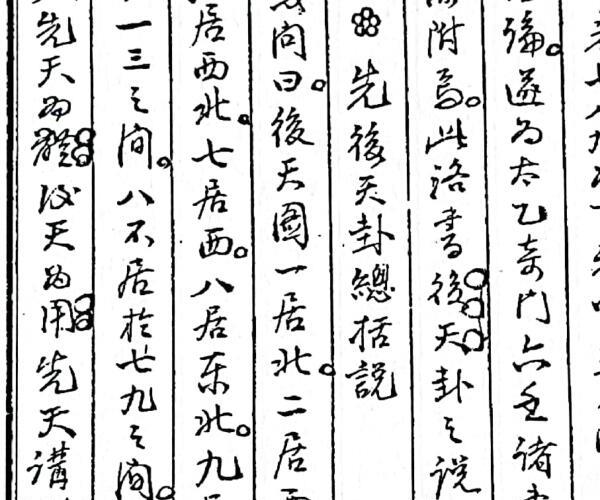 遍遂为太乙奇门六壬诸
附焉此洛書後天卦之说
先後天卦總括説
问曰後天圖一居北二居西
居西北七居西八居东北九居
一三之间八不居於七九之间
先天为體後天为用先天講